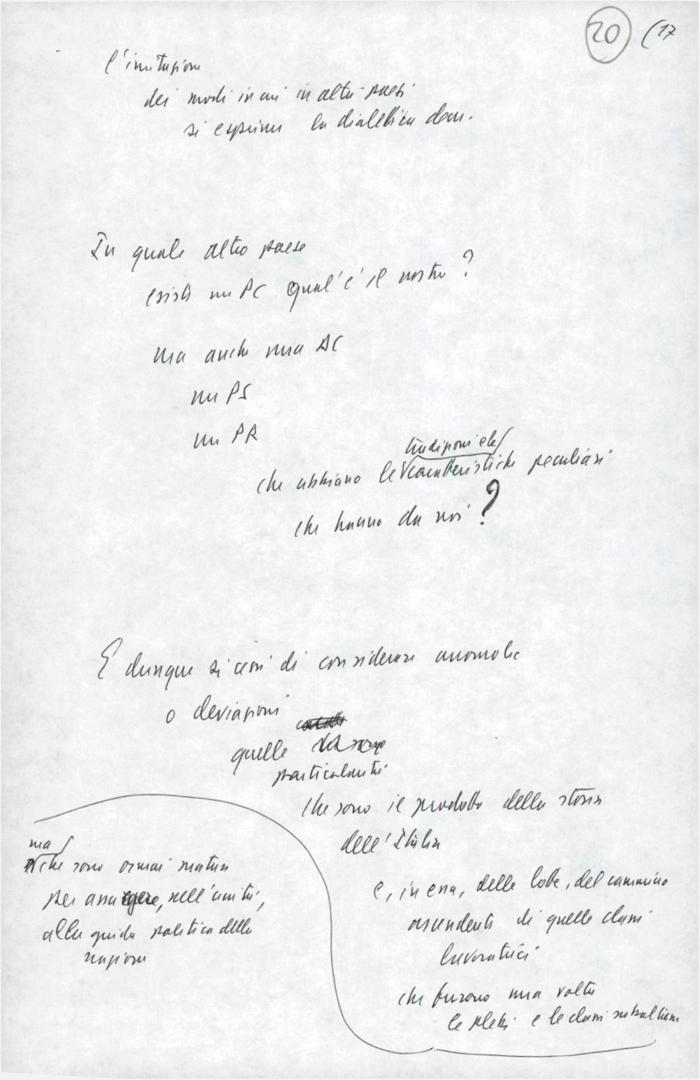 20 (17
l'imitazione
dei modi in cui in altri paesi
si esprime la dialettica dem.
In quale altro paese
esiste un PC qual'è il nostro?
ma anche una DC
un PS
un PR
tradizioni e le
che abbiano le caratteristiche peculiari
che hanno da noi?
E dunque si cessi di considerare anomalie
o deviazioni
quelle
particolarità
che sono il prodotto della storia
dell'Italia
e, in essa, delle lotte, del cammino
ascendente di quelle classi
lavoratrici
che furono una volta
le plebi e le classi subalterne
ma
che sono ormai mature
per assurgere, nell'unità,
alla guida politica della
nazione